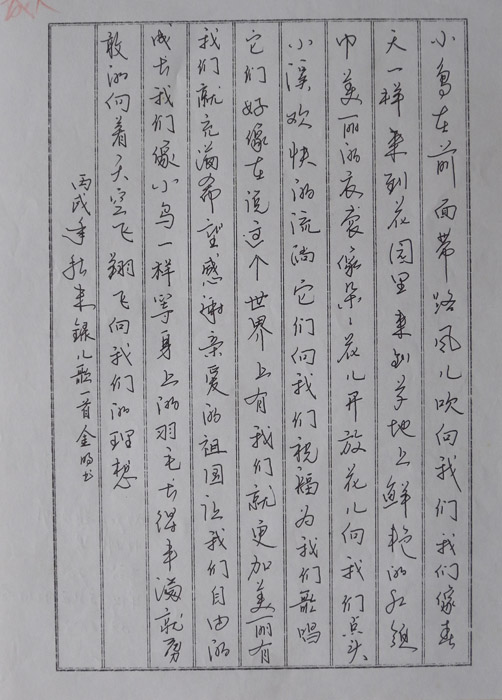 小鸟在前面带路风儿吹向我们我们像春
天一样来到花园里来到草地上鲜艳的红领
巾美丽的衣裳像朵々花儿开放花儿向我们点头
小溪欢快的流淌它们向我们祝福为我们歌唱
它们好像在说这个世界上有我们就更加美丽有
我们就充满希望感谢亲爱的祖国让我们自由的
成长我们像小鸟一样等身上的羽毛长得丰满就勇
敢的向着天空飞翔飞向我们的理想
丙戌年秋来录儿歌一首金明书